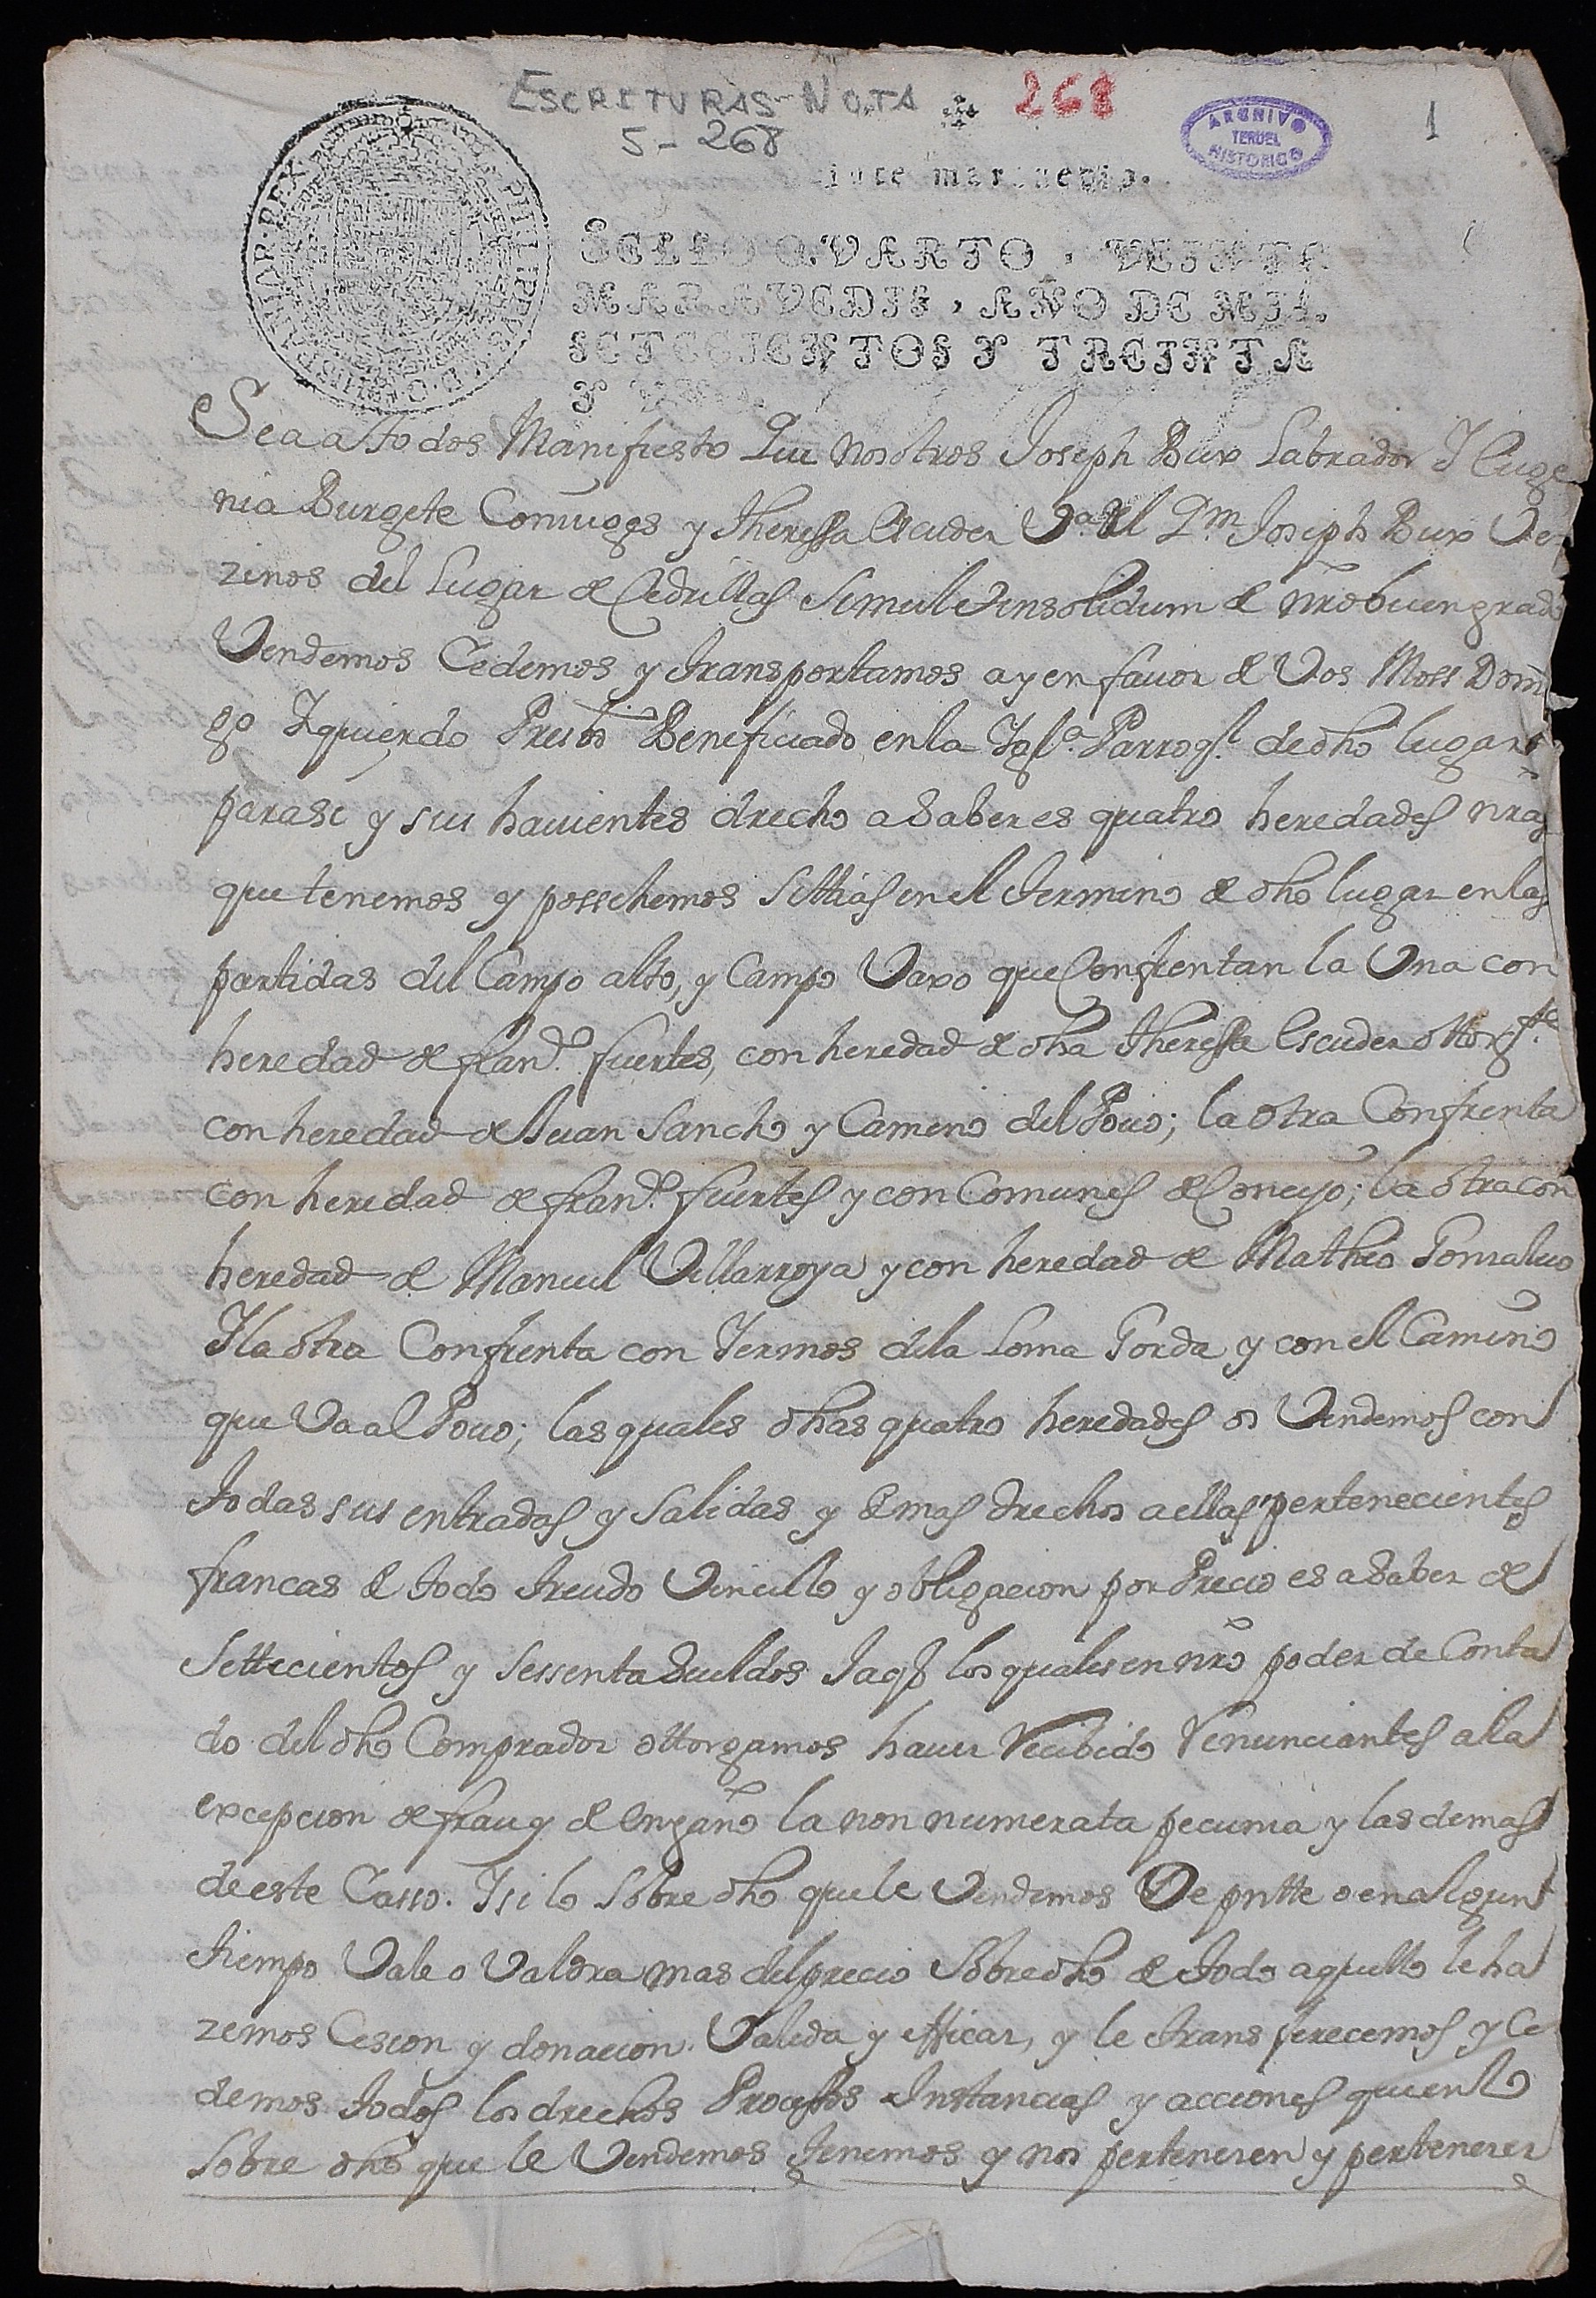 ESCRITURAS-NOTA 268
5-268
ARCHIVO
TERUEL
HISTORICO
1
HISPANIAR. REX PHILIPPVS V D. G.
SELLO QVARTO, VEINTE
MARAVEDIS, AÑO DE MIL
SETECIENTOS Y TREINTA
Y VNO.
Sea a todos Manifiesto Que nosotros Joseph Bux Labrador Y Euge
nia Burgete Conuges y Theressa Escuder Vª del Qm Joseph Bux Ve
zinos del Lugar de Cedrillas Simul et insolidum de nro buen grado
Vendemos Cedemos y transportamos a y en favor de Vos Moss Domī
go Izquierdo Presbō Benificiado en la Iglª Parroql de dho lugar
para si y sus havientes drecho a Saber es quatro heredades nras
que tenemos y possehemos Sittias en el termino de dho lugar en las
partidas del Campo alto, y Campo Vaxo que Confrentan la Una con
heredad de franco fuertes, con heredad de dha Theressa Escuder ottorgte
con heredad de Juan Sancho y Camino del Povo; la otra Confrenta
con heredad de franco fuertes y con Comunes de Concejo; la otra con
heredad de Manuel Villarroya y con heredad de Matheo Gonzalvo
Y la otra Confrenta con Yermos de la Loma Gorda y con el Camino
que Va al Povo; las quales dhas quatro heredades os Vendemos con
todas sus entradas y Salidas y demas drechos a ellas pertenecientes
francas de todo treudo Vinculo y obligacion por Precio es a Saber de
Settecientos y Sessenta Sueldos Jaqs los quales en nro poder de Conta
do del dho Comprador ottorgamos haver Recibido Renunciantes a la
excepcion de frau y de engaño la non numerata pecunia y las demas
de este Casso. Y si lo Sobre dho que le Vendemos De pntte o en algun
tiempo Vale o Valdra mas del precio Sobredho de todo aquello le ha
zemos Cesion y donacion Valida y efficaz, y le transferecemos y Ce
demos todos los drechos Processos Instancias y acciones que en lo
Sobre dho que le Vendemos tenemos y nos pertenecen y pertenecer